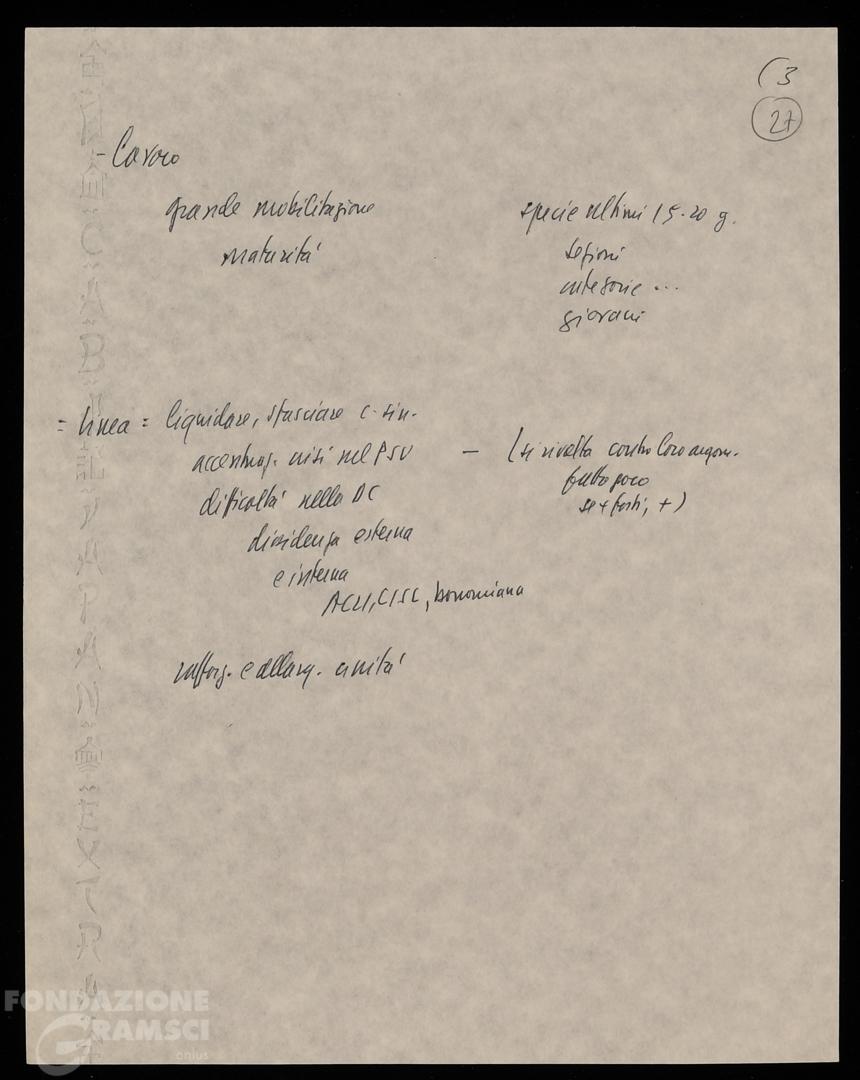 (3
27
- Lavoro
grande mobilitazione
maturità
specie ultimi 15-20 g.
sezioni
categorie ...
giovani
= linea = liquidare, sfasciare c-sin.
accentuaz. crisi nel PSU
difficoltà nella DC
dissidenza esterna
e interna
ACLI, CISL, bonomiana
— (si rivolta contro loro argom.
fatto poco
se + forti, +)
rafforz. e allarg. unità
FONDAZIONE
GRAMSCI
onlus